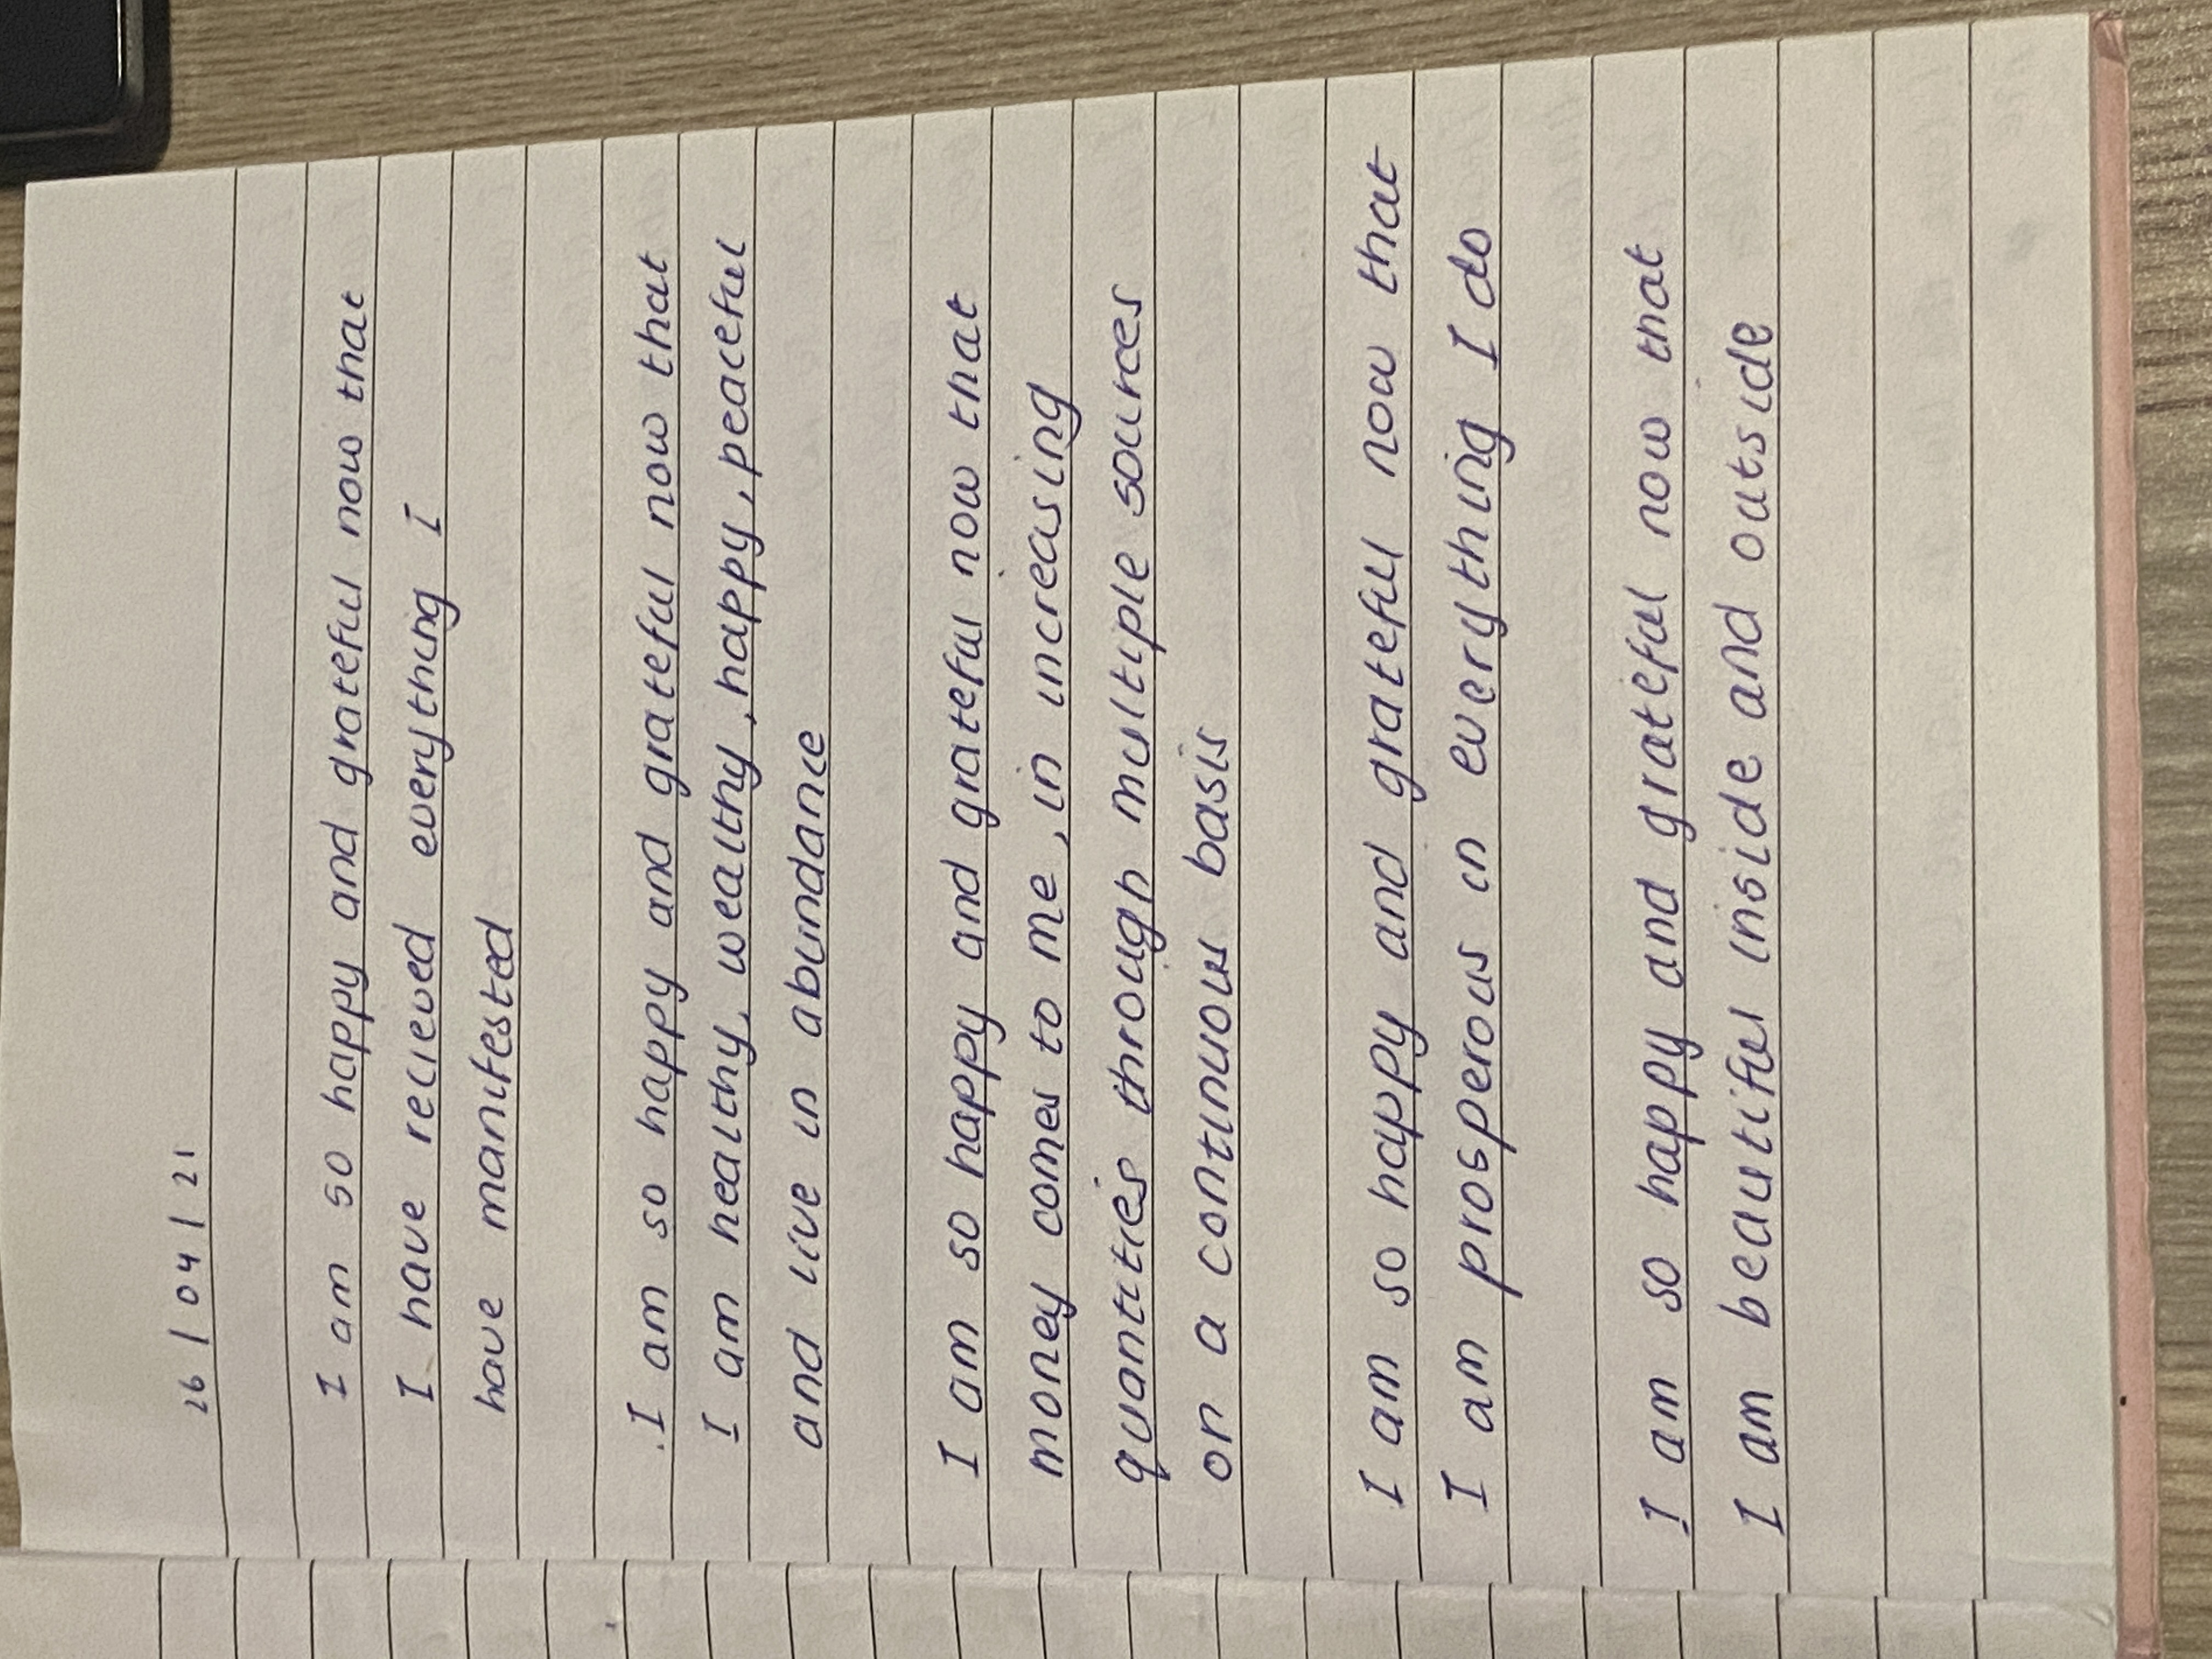 26 / 04 / 21
I am so happy and grateful now that
I have recieved everything I
have manifested
I am so happy and grateful now that
I am healthy, wealthy, happy, peaceful
and live in abundance
I am so happy and grateful now that
money comes to me, in increasing
quantities through multiple sources
on a continuous basis
I am so happy and grateful now that
I am prosperous in everything I do
I am so happy and grateful now that
I am beautiful inside and outside